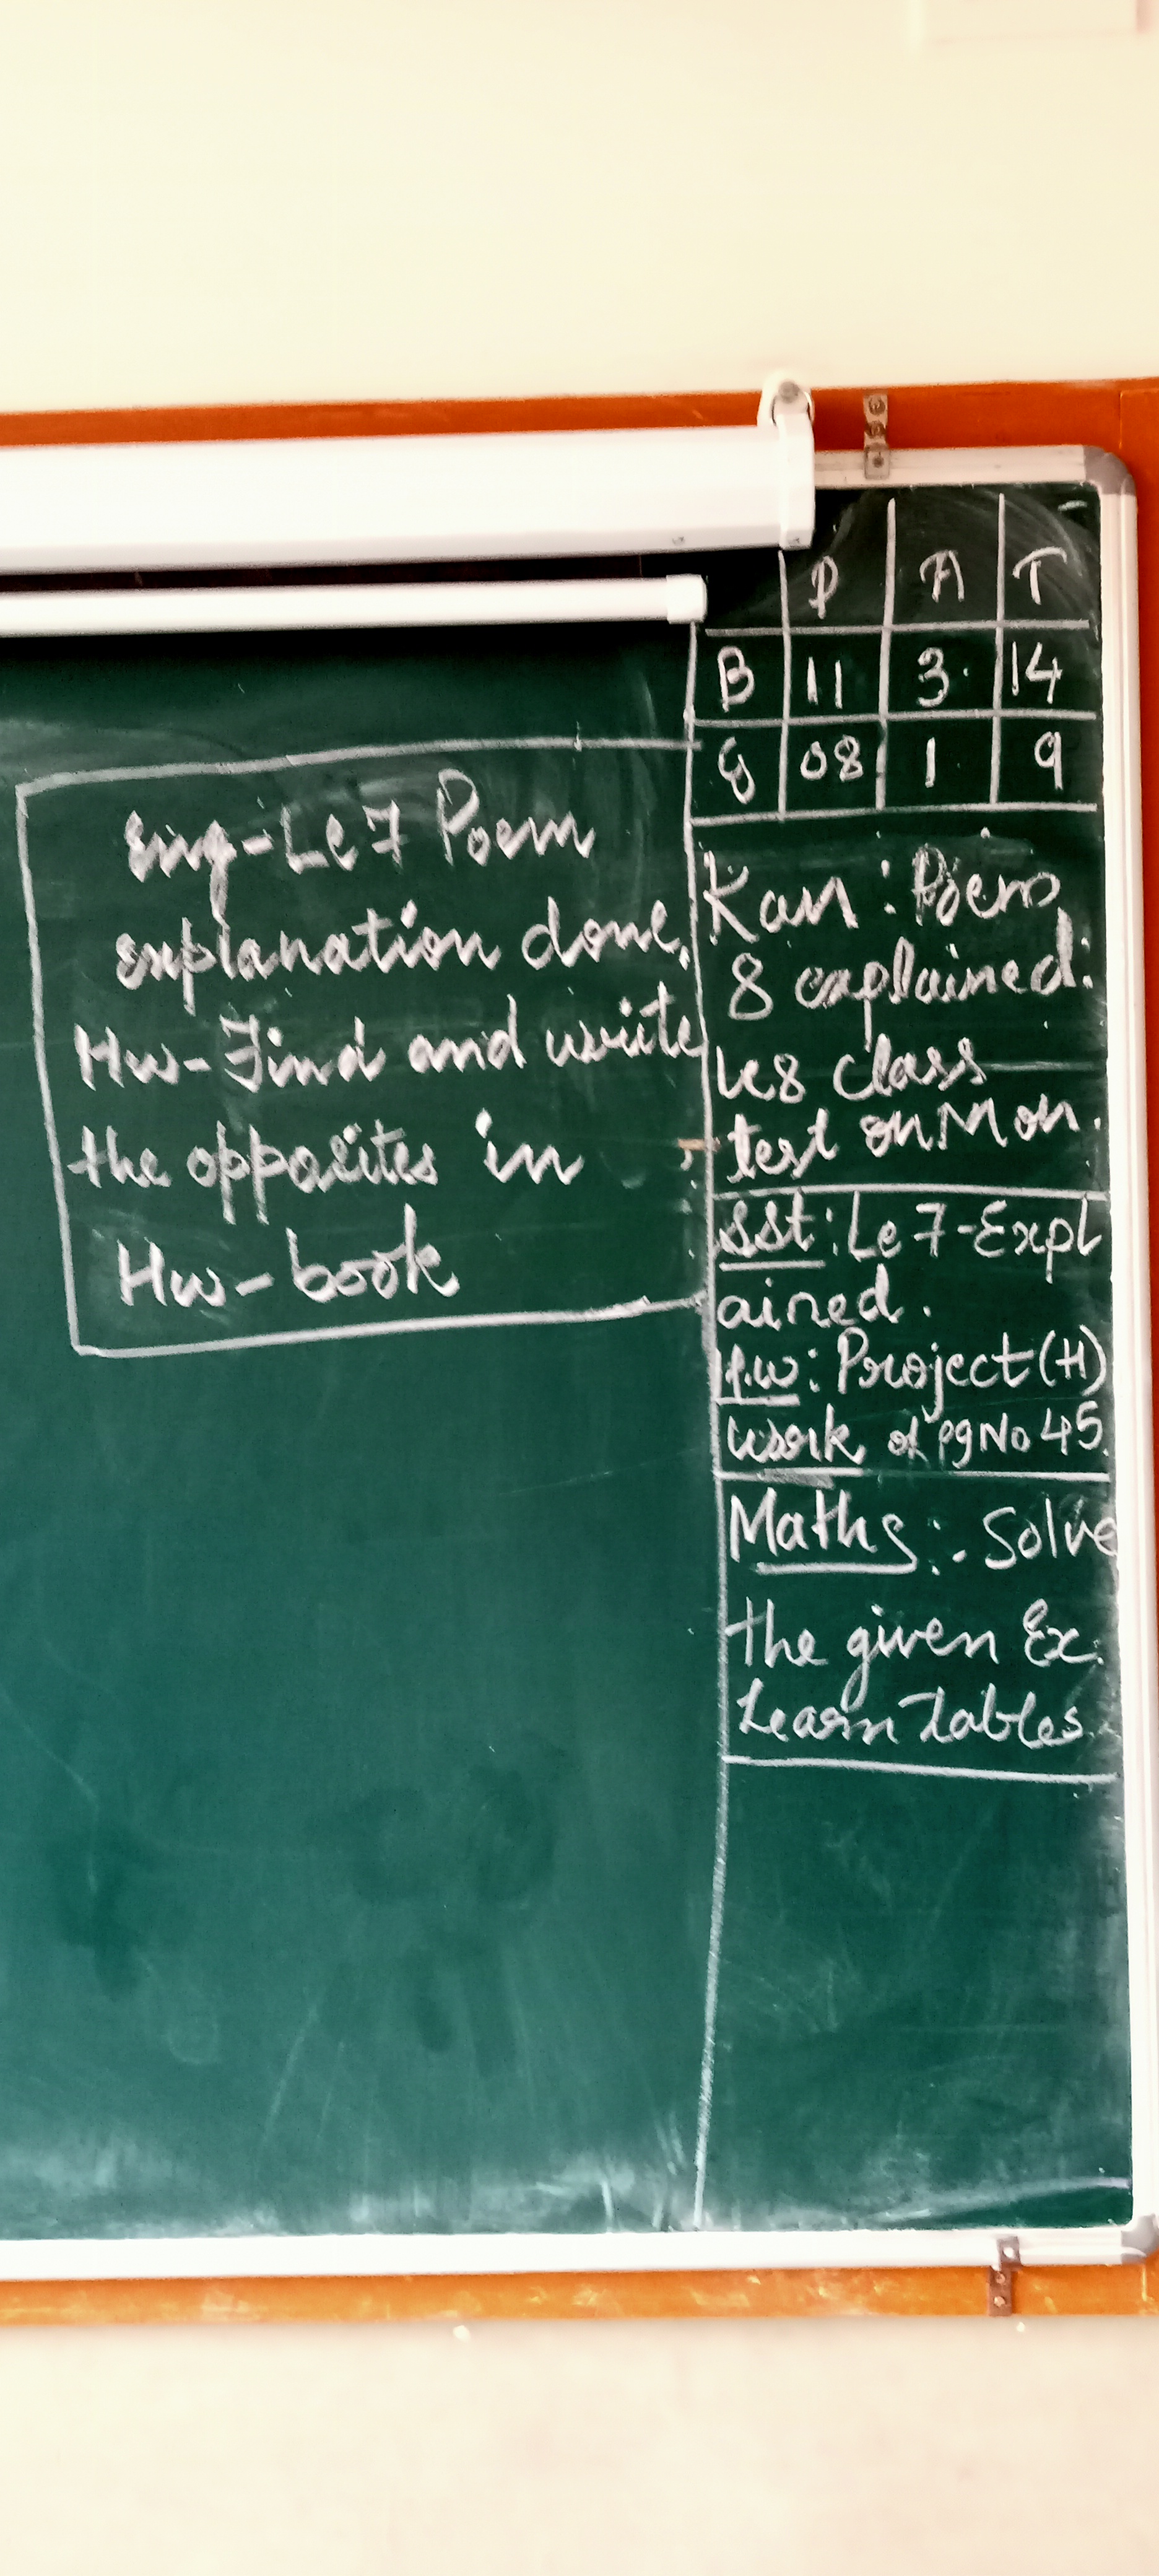 P A T
B 11 3 14
G 08 1 9
Eng-Le 7 Poem
explanation done.
Hw-Find and write
the opposites in
Hw-book
Kan: Poem
8 explained.
Le8 class
test on Mon.
SST: Le 7-Expl
ained.
H.W: Project (H)
work of pg No 45.
Maths:. Solve
the given Ex.
Learn Tables.